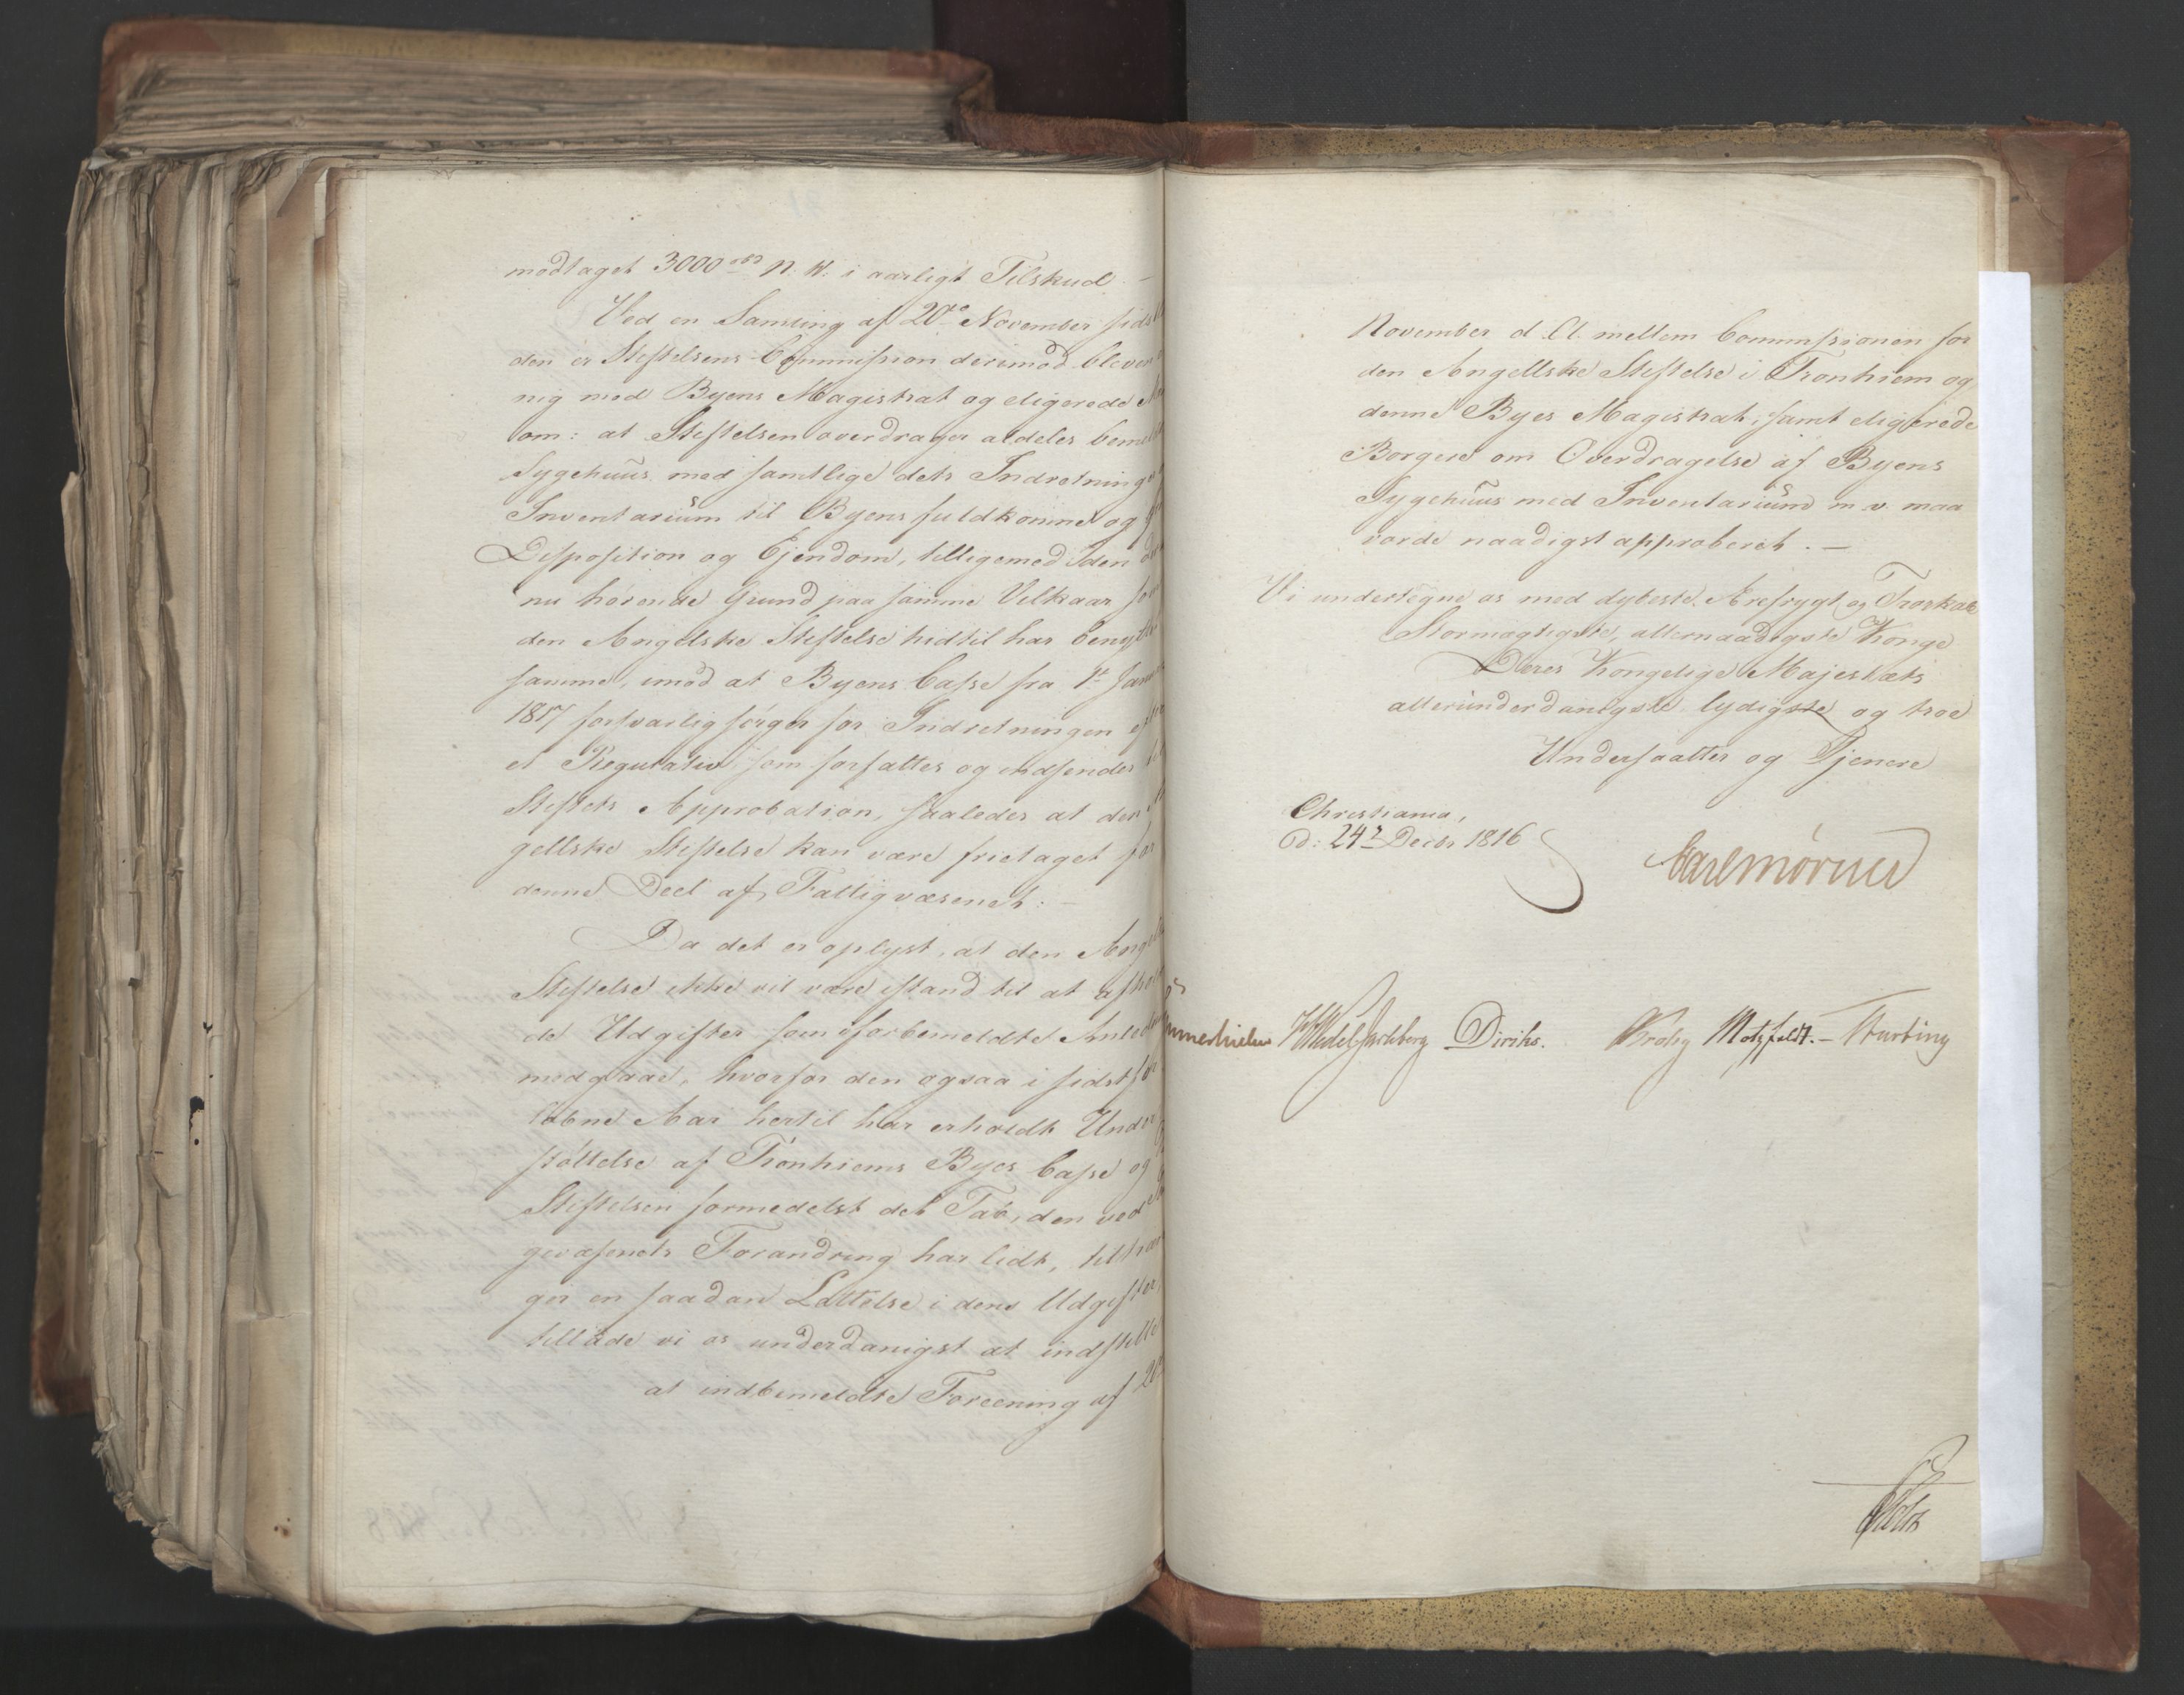 modtaget 3000 rbd N. V. i aarligt Tilskud. —
Ved en Samling af 20de November sidst
den er Stiftelsens Commission derimod bleven
nig med Byens Magistrat og eligerede
om: at Stiftelsen overdrager aldeles bemeldte
Sygehuus med samtlige dets Indretninger
Inventarium til Byens fuldkomne og
Disposition og Ejendom, tilligemed den
nu hørende Grund paa samme Vilkaar som
den Angelske Stiftelse hidtil har benyttet
samme, imod at Byens Casse fra 1st Januar
1817 forsvarlig sørger for Indretningen efter
et Regulativ som forfattes og indsendes til
Stiftets Approbation, saaledes at den
gellske Stiftelse kan være frietaget for
denne Deel af Fattigvæsenet: —
Da det er oplyst, at den Angel
Stiftelse ikke vil være istand til at afhol
de Udgifter som forbemeldte
medgaae, hvorfor den ogsaa i sidst for
løbne Aar hertil har erholdt Under
støttelse af Tronhiems Byes Casse og
Stiftelsen formedelst det Tab, den ved
gevæsenets Forandring har lidt, tiltræn
ger en saadan Lættelse i dens Udgifter,
tillade vi os underdanigst at indstille
at indbemeldte Foreening af 20
November d. A. mellem Commissionen for
den Angellske Stiftelse i Tronhiem og
denne Byes Magistrat, samt eligerede
Borgere om Overdragelse af Byens
Sygehuus med Inventarium m. v. maa
vorde naadigst approberet. —
Vi undertegne os med dybeste Ærefrygt og Troskab
Stormægtigste, allernaadigste Konge
Deres Kongelige Majestæts
allerunderdanigste lydigste og troe
Undersaatter og Tjenere
Christiania,
d: 24de Decbr 1816
Carl Mörner
Sommerhielm HWedel Jarlsberg Diriks. Krohg Motzfeldt. — Treschow